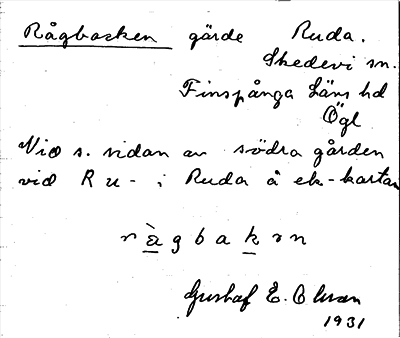 Rågbacken gärde Ruda.
Skedevi sn.
Finspånga läns hd
Ögl
Vid s. sidan av södra gården
vid R u - i Ruda å ek-kartan
r å̀ g b a k ɘ n
Gustaf E. Olsson
1931